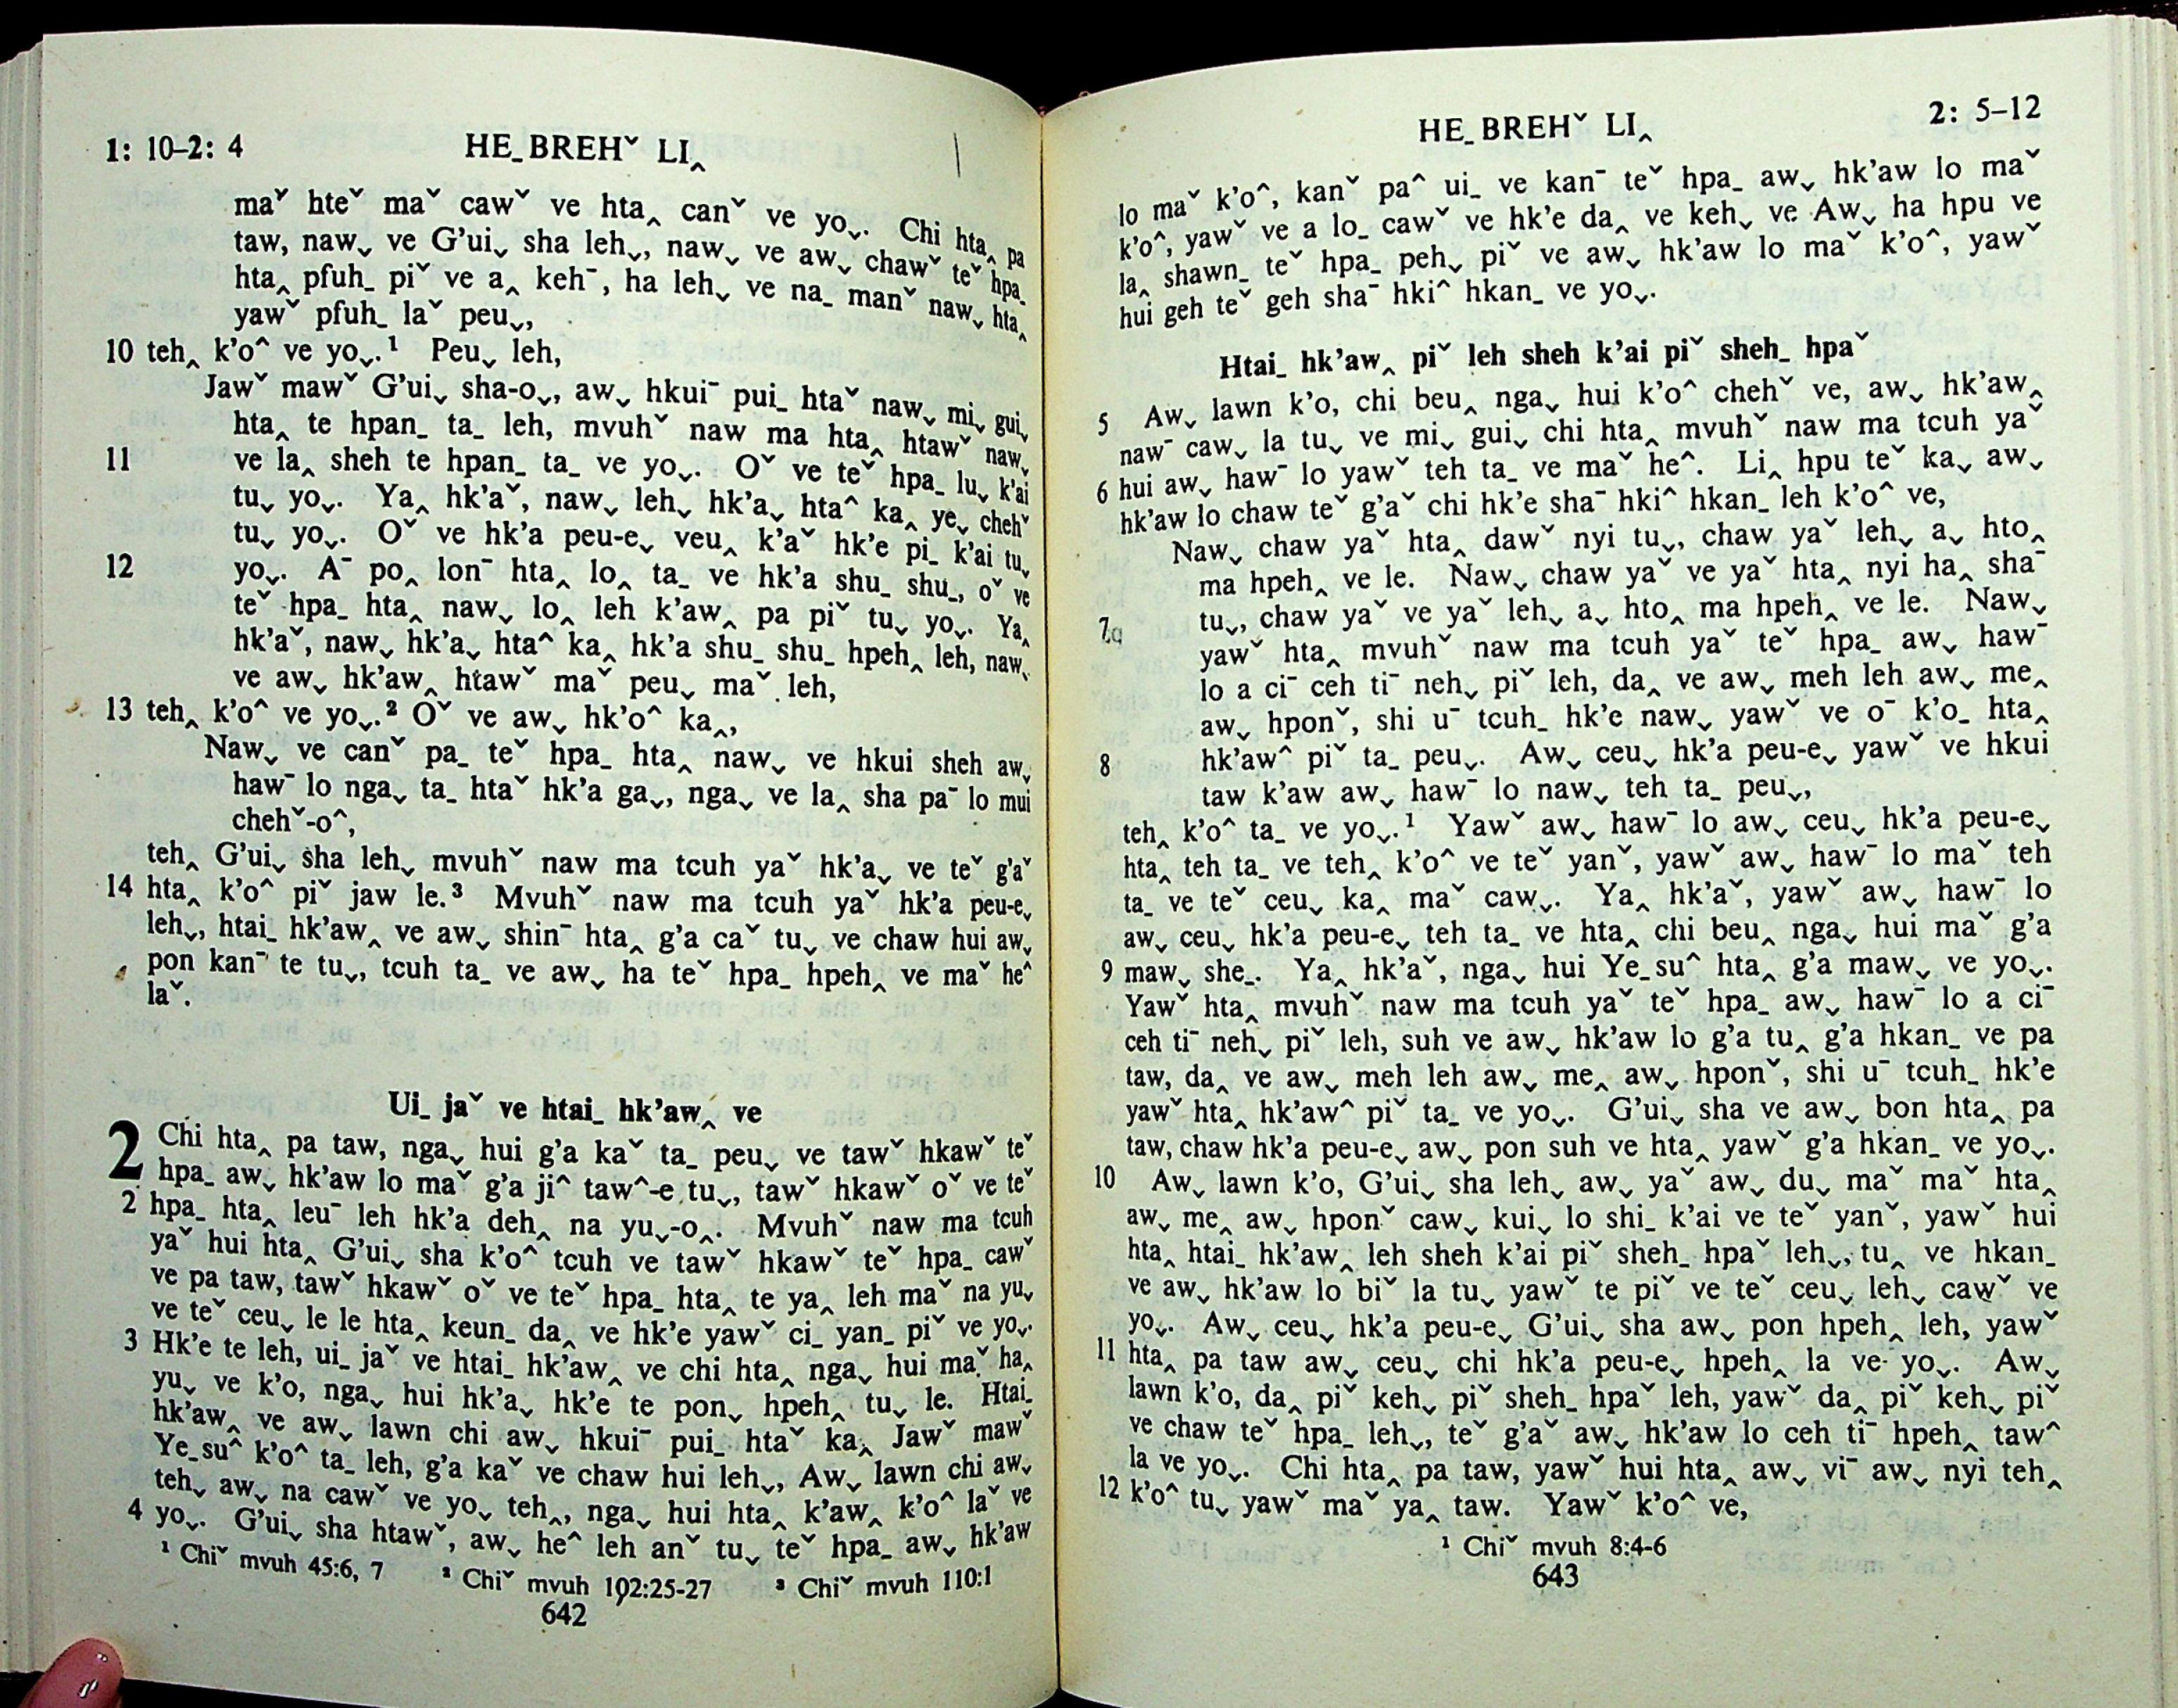 1: 10–2: 4 HE˗BREHˇ LI‸
maˇ hteˇ maˇ cawˇ ve hta‸ canˇ ve yoˬ. Chi hta‸ pa
taw, nawˬ ve G'uiˬ sha lehˬ, nawˬ ve awˬ chawˇ teˇ hpa˗
hta‸ pfuh˗ piˇ ve a‸ kehˉ, ha lehˬ ve na˗ manˇ nawˬ hta‸
yawˇ pfuh˗ laˇ peuˬ,
10 teh‸ k'o^ ve yoˬ.¹ Peuˬ leh,
Jawˇ mawˇ G'uiˬ sha-oˬ, awˬ hkuiˉ pui˗ htaˇ nawˬ miˬ guiˬ
hta‸ te hpan˗ ta˗ leh, mvuhˇ naw ma hta‸ htawˇ nawˬ
11 ve la‸ sheh te hpan˗ ta˗ ve yoˬ. Oˇ ve teˇ hpa˗ luˬ k'ai
tuˬ yoˬ. Ya‸ hk'aˇ, nawˬ lehˬ hk'aˬ hta^ ka‸ yeˬ chehˇ
tuˬ yoˬ. Oˇ ve hk'a peu-eˬ veu‸ k'aˇ hk'e pi˗ k'ai tuˬ
12 yoˬ. Aˉ po‸ lonˉ hta‸ lo‸ ta˗ ve hk'a shu˗ shu˗, oˇ ve
teˇ hpa˗ hta‸ nawˬ lo‸ leh k'aw‸ pa piˇ tuˬ yoˬ. Ya‸
hk'aˇ, nawˬ hk'aˬ hta^ ka‸ hk'a shu˗ shu˗ hpeh‸ leh, nawˬ
ve awˬ hk'aw‸ htawˇ maˇ peuˬ maˇ leh,
13 teh‸ k'o^ ve yoˬ.² Oˇ ve awˬ hk'o^ ka‸,
Nawˬ ve canˇ pa˗ teˇ hpa˗ hta‸ nawˬ ve hkui sheh awˬ
hawˉ lo ngaˬ ta˗ htaˇ hk'a gaˬ, ngaˬ ve la‸ sha paˉ lo mui
chehˇ-o^,
teh‸ G'uiˬ sha lehˬ mvuhˇ naw ma tcuh yaˇ hk'aˬ ve teˇ g'aˇ
14 hta‸ k'o^ piˇ jaw le.³ Mvuhˇ naw ma tcuh yaˇ hk'a peu-eˬ
lehˬ, htai˗ hk'aw‸ ve awˬ shinˉ hta‸ g'a caˇ tuˬ ve chaw hui awˬ
pon kanˉ te tuˬ, tcuh ta˗ ve awˬ ha teˇ hpa˗ hpeh‸ ve maˇ he^
laˇ.
Ui˗ jaˇ ve htai˗ hk'aw‸ ve
2 Chi hta‸ pa taw, ngaˬ hui g'a kaˇ ta˗ peuˬ ve tawˇ hkawˇ teˇ
hpa˗ awˬ hk'aw lo maˇ g'a ji^ taw^-eˬ tuˬ, tawˇ hkawˇ oˇ ve teˇ
2 hpa˗ hta‸ leuˉ leh hk'a deh‸ na yuˬ-o‸. Mvuhˇ naw ma tcuh
yaˇ hui hta‸ G'uiˬ sha k'o^ tcuh ve tawˇ hkawˇ teˇ hpa˗ cawˇ
ve pa taw, tawˇ hkawˇ oˇ ve teˇ hpa˗ hta‸ te ya‸ leh maˇ na yuˬ
ve teˇ ceuˬ le le hta‸ keun˗ da‸ ve hk'e yawˇ ci˗ yan˗ piˇ ve yoˬ.
3 Hk'e te leh, ui˗ jaˇ ve htai˗ hk'aw‸ ve chi hta‸ ngaˬ hui maˇ ha‸
yuˬ ve k'o, ngaˬ hui hk'aˬ hk'e te ponˬ hpeh‸ tuˬ le. Htai˗
hk'aw‸ ve awˬ lawn chi awˬ hkuiˉ pui˗ htaˇ ka‸ Jawˇ mawˇ
Ye˗su^ k'o^ ta˗ leh, g'a kaˇ ve chaw hui lehˬ, Awˬ lawn chi awˬ
tehˬ awˬ na cawˇ ve yoˬ teh‸, ngaˬ hui hta‸ k'aw‸ k'o^ laˇ ve
4 yoˬ. G'uiˬ sha htawˇ, awˬ he^ leh anˇ tuˬ teˇ hpa˗ awˬ hk'aw
¹ Chiˇ mvuh 45:6, 7 ² Chiˇ mvuh 102:25-27 ³ Chiˇ mvuh 110:1
642
HE˗BREHˇ LI‸ 2: 5–12
lo maˇ k'o^, kanˇ pa^ ui˗ ve kanˉ teˇ hpa˗ awˬ hk'aw lo maˇ
k'o^, yawˇ ve a lo˗ cawˇ ve hk'e da‸ ve kehˬ ve Awˬ ha hpu ve
la‸ shawn˗ teˇ hpa˗ pehˬ piˇ ve awˬ hk'aw lo maˇ k'o^, yawˇ
hui geh teˇ geh shaˉ hki^ hkan˗ ve yoˬ.
Htai˗ hk'aw‸ piˇ leh sheh k'ai piˇ sheh˗ hpaˇ
5 Awˬ lawn k'o, chi beu‸ ngaˬ hui k'o^ chehˇ ve, awˬ hk'aw‸
nawˉ cawˬ la tuˬ ve miˬ guiˬ chi hta‸ mvuhˇ naw ma tcuh yaˇ
hui awˬ hawˉ lo yawˇ teh ta˗ ve maˇ he^. Li‸ hpu teˇ kaˬ awˬ
6 hk'aw lo chaw teˇ g'aˇ chi hk'e shaˉ hki^ hkan˗ leh k'o^ ve,
Nawˬ chaw yaˇ hta‸ dawˇ nyi tuˬ, chaw yaˇ lehˬ aˬ hto‸
ma hpeh‸ ve le. Nawˬ chaw yaˇ ve yaˇ hta‸ nyi ha‸ shaˉ
tuˬ, chaw yaˇ ve yaˇ lehˬ aˬ hto‸ ma hpeh‸ ve le. Nawˬ
7 yawˇ hta‸ mvuhˇ naw ma tcuh yaˇ teˇ hpa˗ awˬ hawˉ
lo a ciˉ ceh tiˉ nehˬ piˇ leh, da‸ ve awˬ meh leh awˬ me‸
awˬ hponˇ, shi uˉ tcuh˗ hk'e nawˬ yawˇ ve oˉ k'o˗ hta‸
8 hk'aw^ piˇ ta˗ peuˬ. Awˬ ceuˬ hk'a peu-eˬ yawˇ ve hkui
taw k'aw awˬ hawˉ lo nawˬ teh ta˗ peuˬ,
teh‸ k'o^ ta˗ ve yoˬ.¹ Yawˇ awˬ hawˉ lo awˬ ceuˬ hk'a peu-eˬ
hta‸ teh ta˗ ve teh‸ k'o^ ve teˇ yanˇ, yawˇ awˬ hawˉ lo maˇ teh
ta˗ ve teˇ ceuˬ ka‸ maˇ cawˬ. Ya‸ hk'aˇ, yawˇ awˬ hawˉ lo
awˬ ceuˬ hk'a peu-eˬ teh ta˗ ve hta‸ chi beu‸ ngaˬ hui maˇ g'a
9 mawˬ she˗. Ya‸ hk'aˇ, ngaˬ hui Ye˗su^ hta‸ g'a mawˬ ve yoˬ.
Yawˇ hta‸ mvuhˇ naw ma tcuh yaˇ teˇ hpa˗ awˬ hawˉ lo a ciˉ
ceh tiˉ nehˬ piˇ leh, suh ve awˬ hk'aw lo g'a tu‸ g'a hkan˗ ve pa
taw, da‸ ve awˬ meh leh awˬ me‸ awˬ hponˇ, shi uˉ tcuh˗ hk'e
yawˇ hta‸ hk'aw^ piˇ ta˗ ve yoˬ. G'uiˬ sha ve awˬ bon hta‸ pa
taw, chaw hk'a peu-eˬ awˬ pon suh ve hta‸ yawˇ g'a hkan˗ ve yoˬ.
10 Awˬ lawn k'o, G'uiˬ sha lehˬ awˬ yaˇ awˬ duˬ maˇ maˇ hta‸
awˬ me‸ awˬ hponˇ cawˬ kuiˬ lo shi˗ k'ai ve teˇ yanˇ, yawˇ hui
hta‸ htai˗ hk'aw‸ leh sheh k'ai piˇ sheh˗ hpaˇ lehˬ, tu‸ ve hkan˗
ve awˬ hk'aw lo biˇ la tuˬ yawˇ te piˇ ve teˇ ceuˬ lehˬ cawˇ ve
yoˬ. Awˬ ceuˬ hk'a peu-eˬ G'uiˬ sha awˬ pon hpeh‸ leh, yawˇ
11 hta‸ pa taw awˬ ceuˬ chi hk'a peu-eˬ hpeh‸ la ve yoˬ. Awˬ
lawn k'o, da‸ piˇ kehˬ piˇ sheh˗ hpaˇ leh, yawˇ da‸ piˇ kehˬ piˇ
ve chaw teˇ hpa˗ lehˬ, teˇ g'aˇ awˬ hk'aw lo ceh tiˉ hpeh‸ taw^
la ve yoˬ. Chi hta‸ pa taw, yawˇ hui hta‸ awˬ viˉ awˬ nyi teh‸
12 k'o^ tuˬ yawˇ maˇ ya‸ taw. Yawˇ k'o^ ve,
¹ Chiˇ mvuh 8:4-6
643